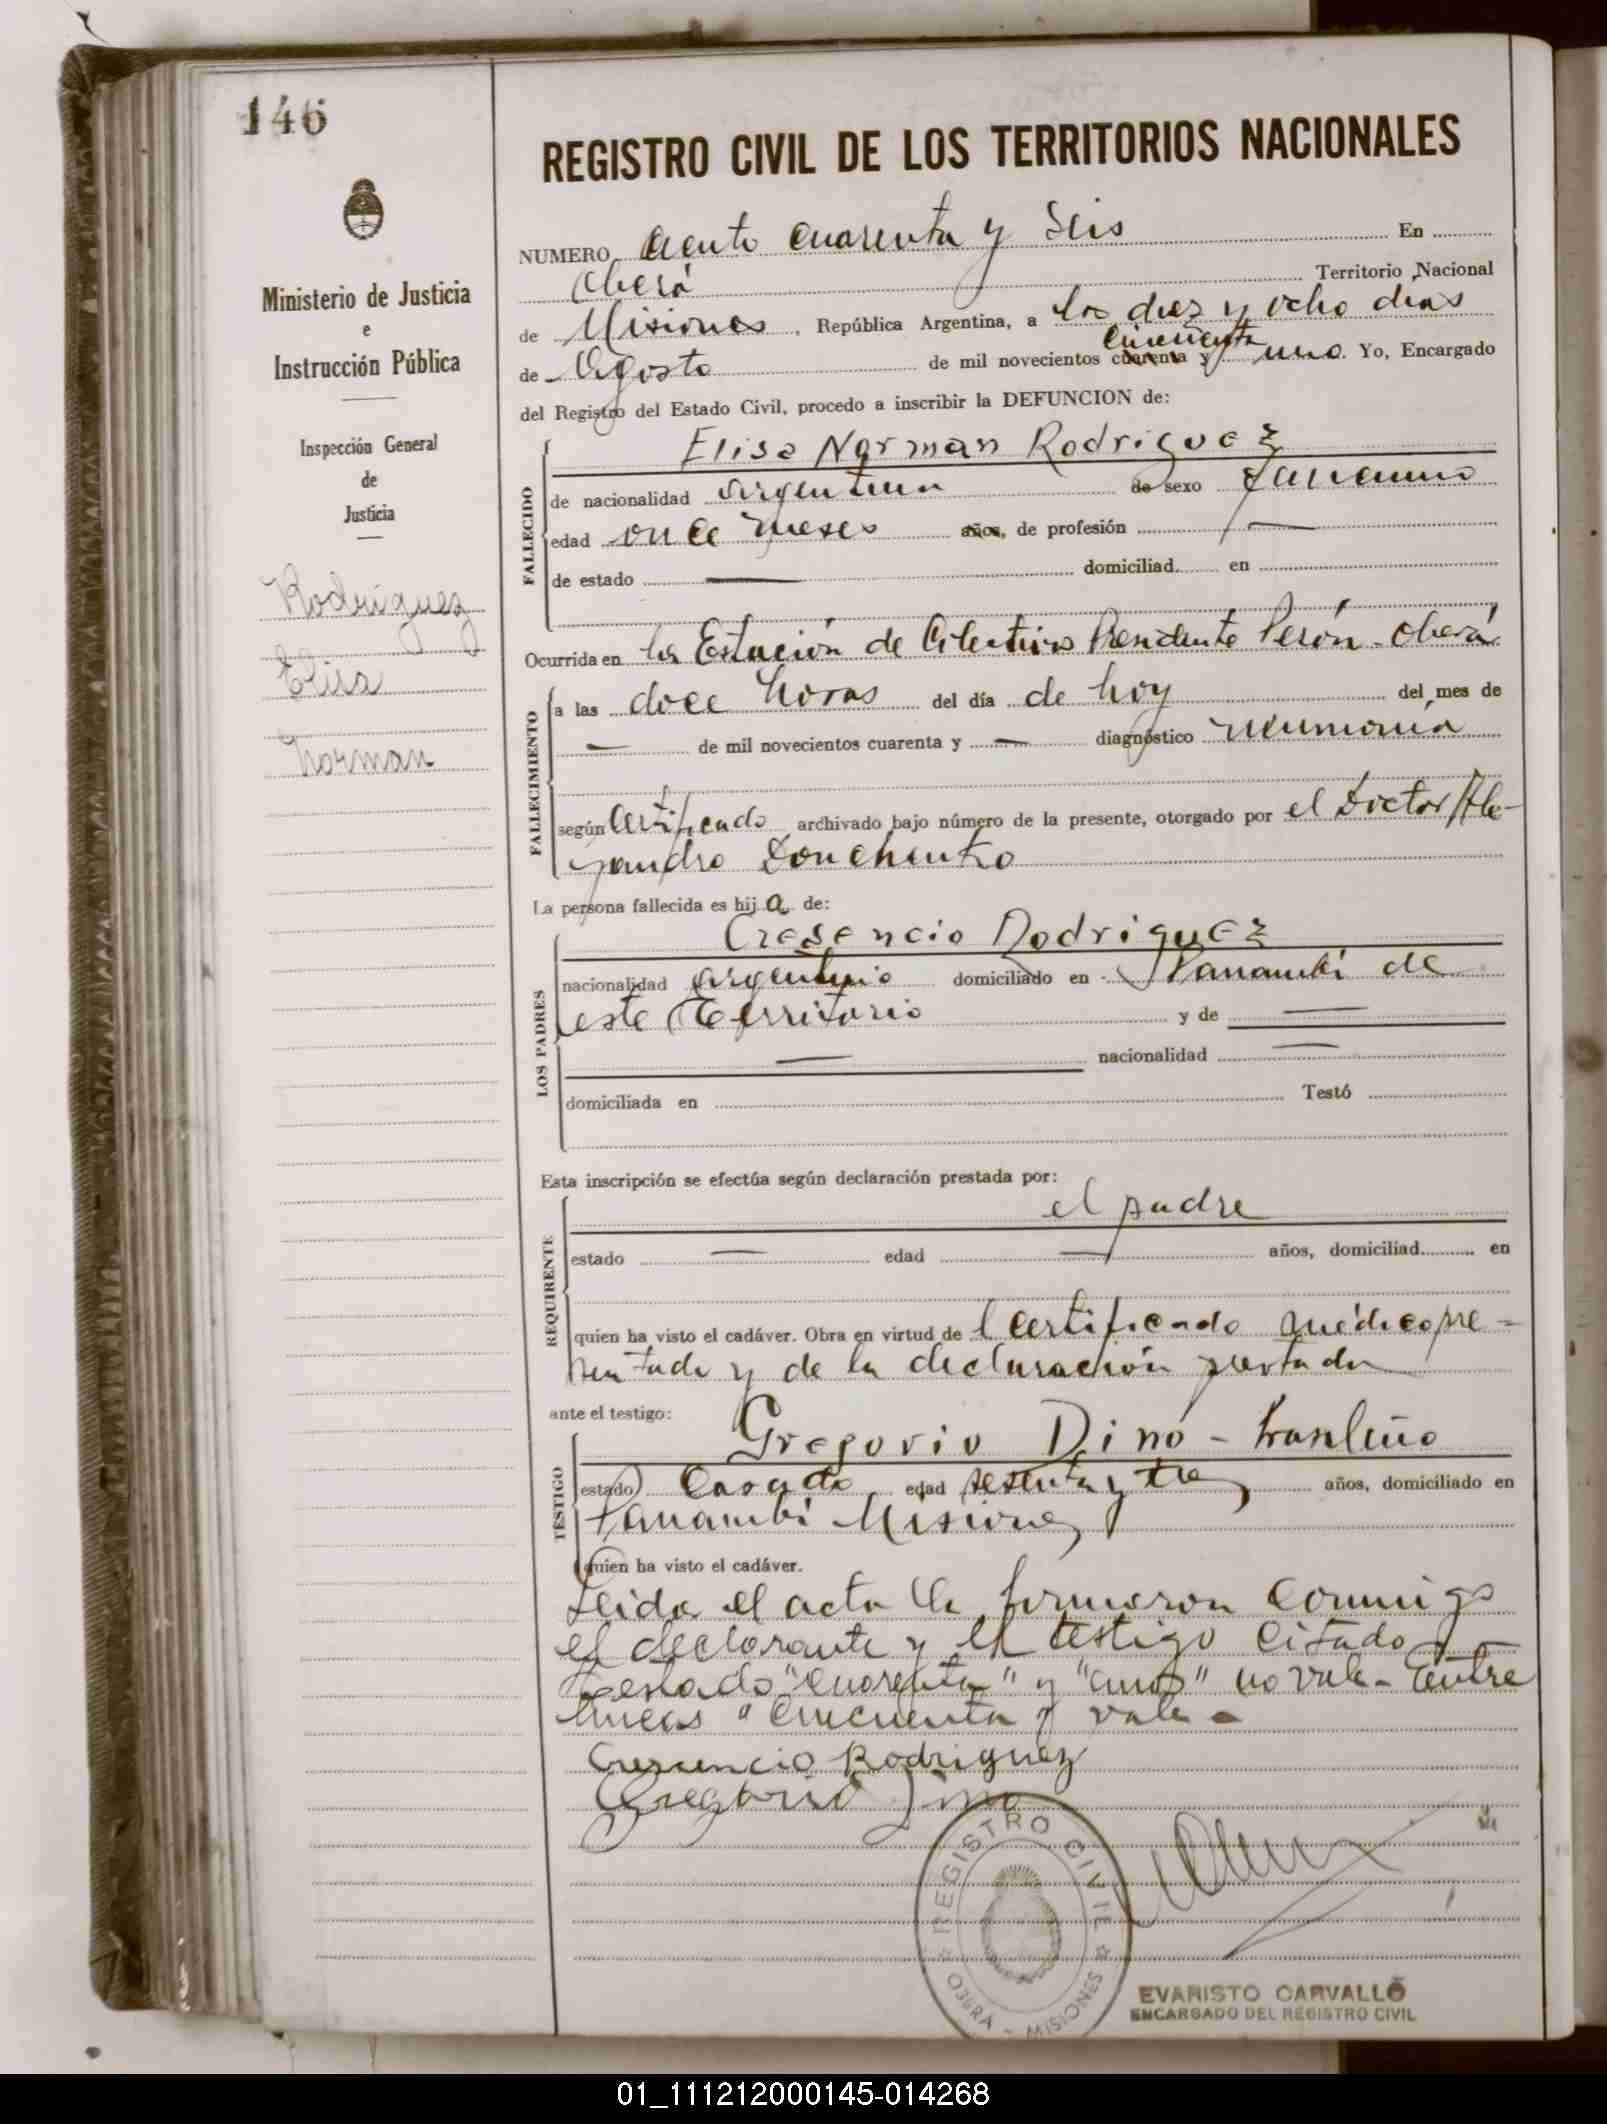 146
Ministerio de Justicia
e
Instrucción Pública
Inspección General
de
Justicia
Rodriguez
Elisa
Norman
REGISTRO CIVIL DE LOS TERRITORIOS NACIONALES
NUMERO ciento cuarenta y Seis En
Oberá Territorio Nacional
de Misiones, República Argentina, a los diez y ocho dias
cincuenta
de Agosto de mil novecientos cuarenta y uno. Yo, Encargado
del Registro del Estado Civil, procedo a inscribir la DEFUNCION de:
Elisa Norman Rodriguez
FALLECIDO
de nacionalidad argentina de sexo femenino
edad once meses años, de profesión —
de estado — domiciliad en
Ocurrida en la Estación de Presidente Perón - Oberá
FALLECIMIENTO
a las doce horas del día de hoy del mes de
— de mil novecientos cuarenta y — diagnóstico neumonía
según certificado archivado bajo número de la presente, otorgado por el Doctor Ale-
jandro Donchenko
La persona fallecida es hija de:
LOS PADRES
Cresencio Rodriguez
nacionalidad argentino domiciliado en Panambí de
este Territorio y de —
— nacionalidad —
domiciliada en Testó
Esta inscripción se efectúa según declaración prestada por:
REQUIRENTE
el padre
estado — edad — años, domiciliad en
quien ha visto el cadáver. Obra en virtud del certificado médico pre-
sentado y de la declaración prestada
ante el testigo:
TESTIGO
Gregorio Dino - brasileño
estado casado edad sesenta y tres años, domiciliado en
Panambí Misiones
quien ha visto el cadáver.
Leida el acta la firmaron conmigo
el declarante y el testigo citado
Testado "cuarenta" y "años" no vale - Entre
lineas "cincuenta" vale -
Crescencio Rodriguez
Gregorio Dino
REGISTRO CIVIL
OBERA - MISIONES
EVARISTO CARVALLO
ENCARGADO DEL REGISTRO CIVIL
01_111212000145-014268